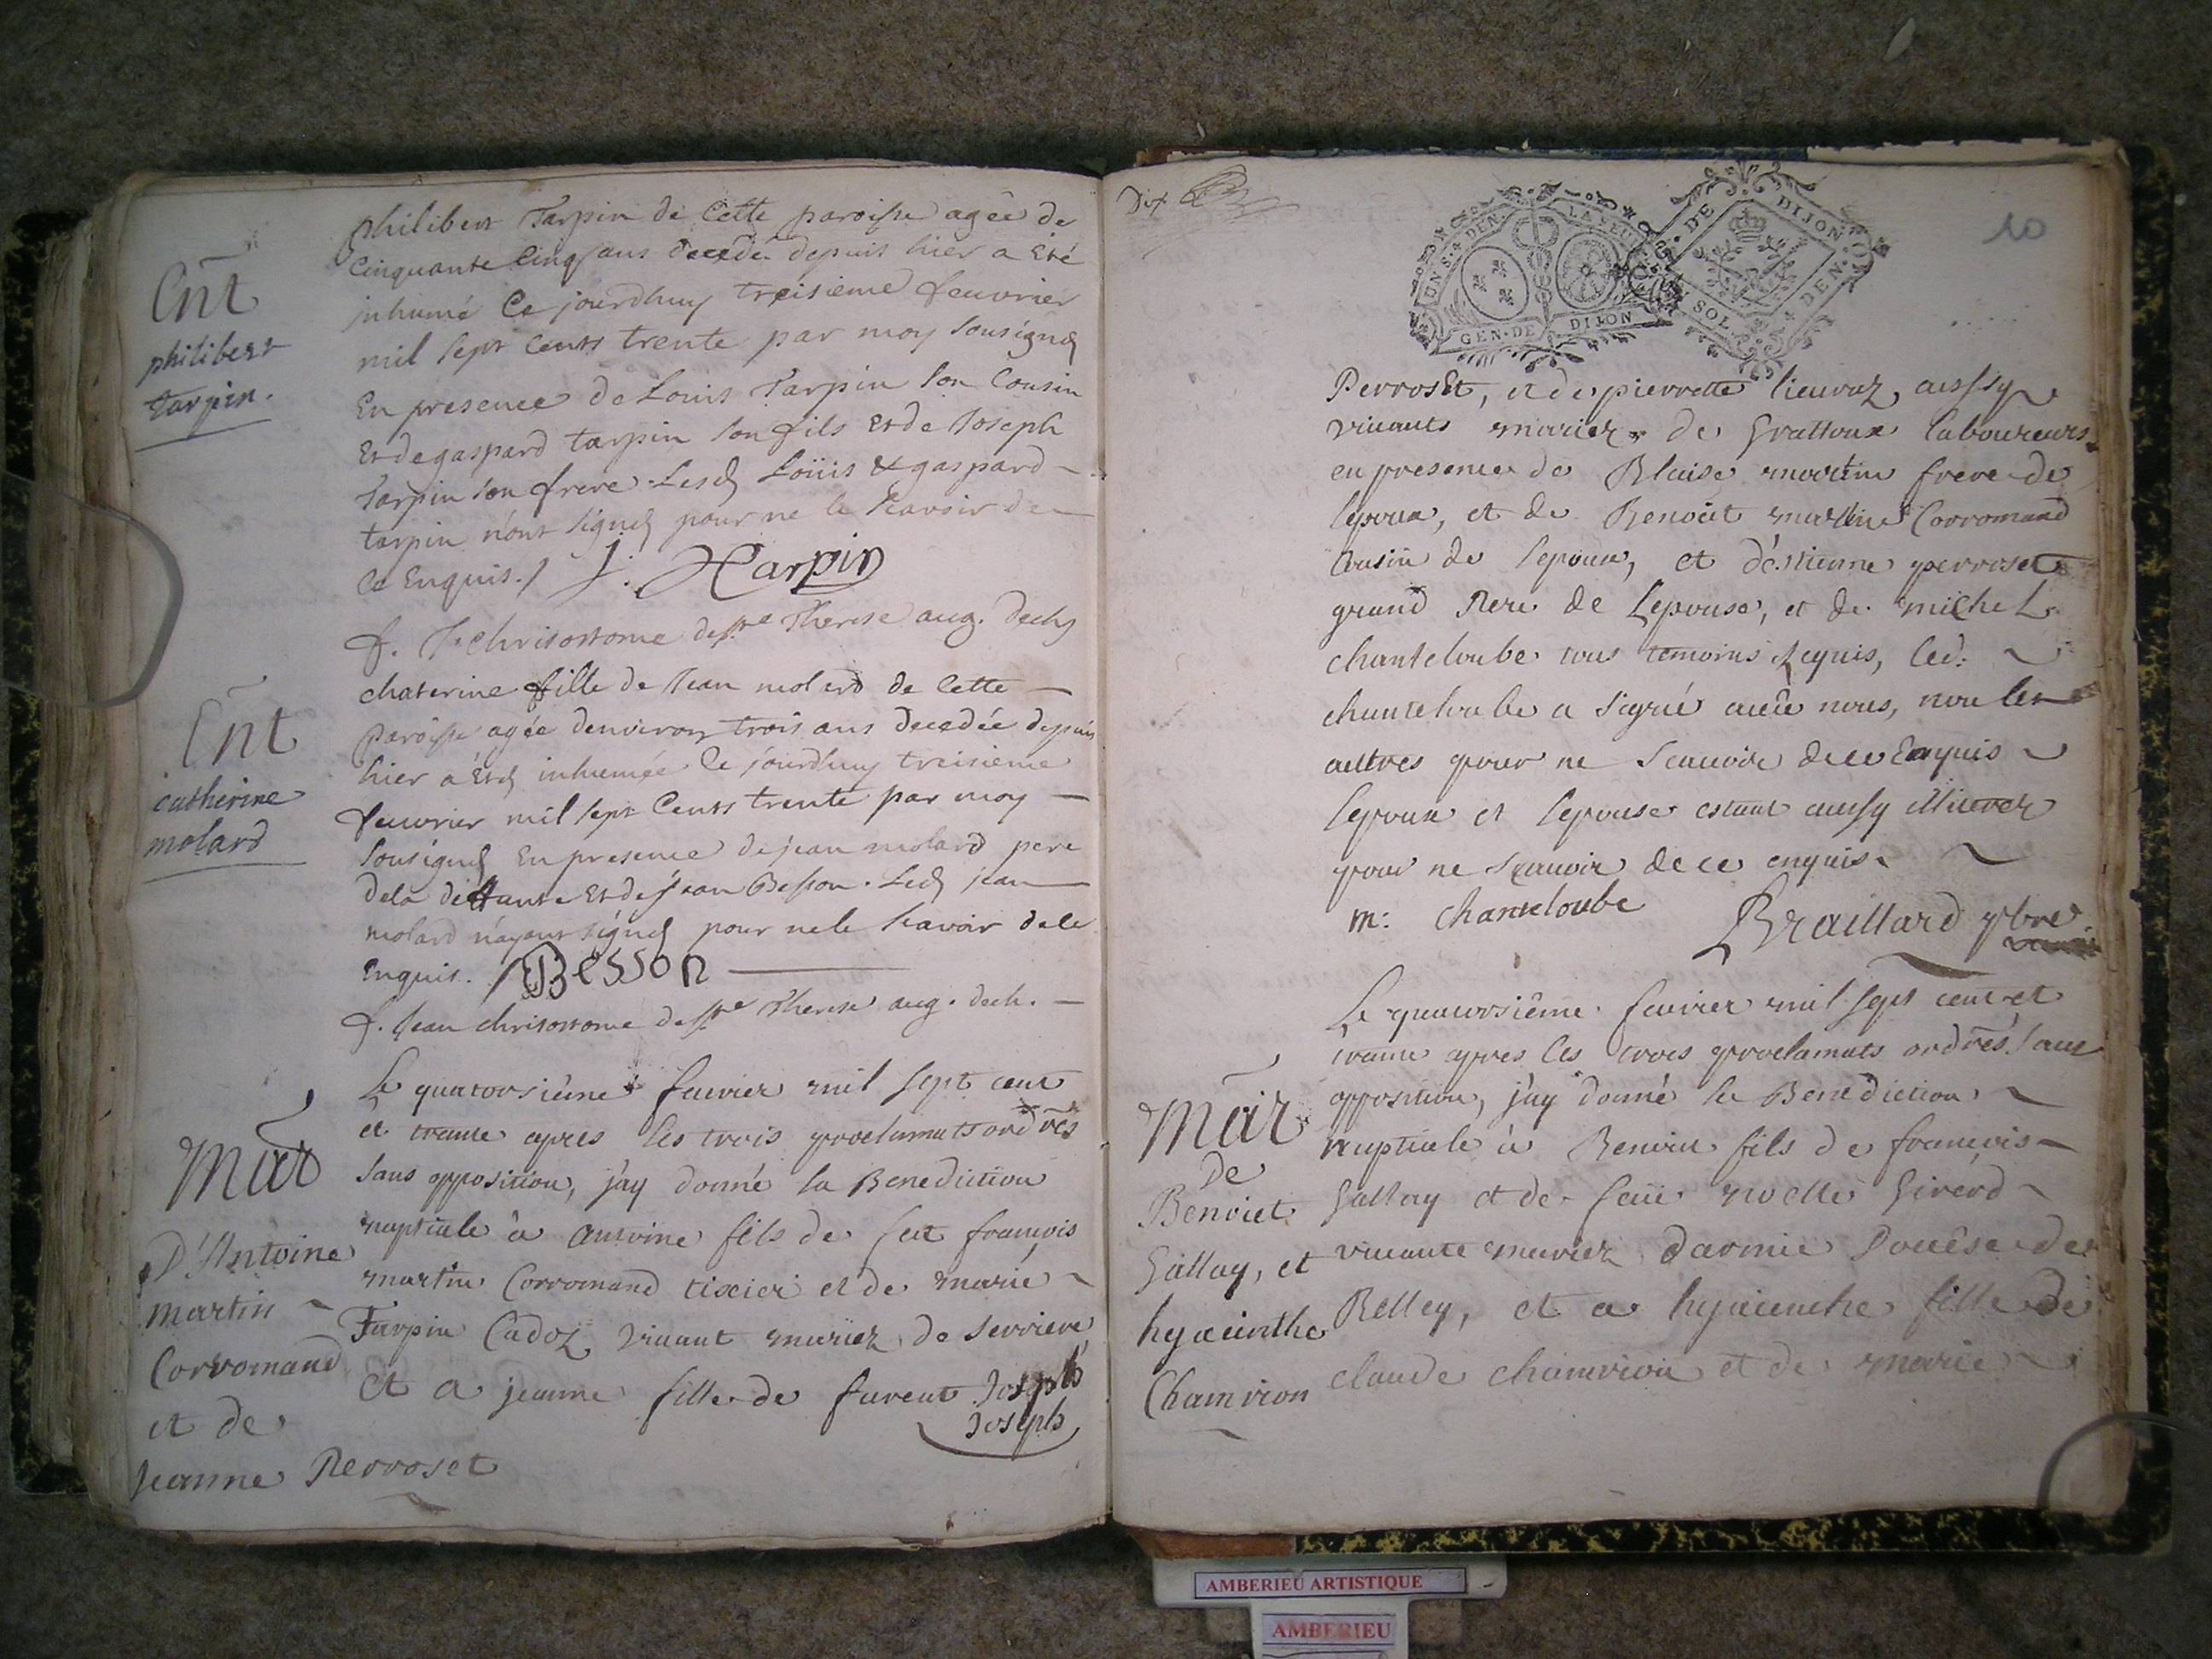 Ent
philibert
tarpin.
philibert Tarpin de Cette paroisse agée de
Cinquante Cinq ans decedé depuis hier a Eté
inhumé Ce jourdhuy treisieme feuvrier
mil sept Cents trente par moy sousigné
En presence de Louis Tarpin son Cousin
Et de gaspard tarpin son fils Et de Joseph
Tarpin son frere. Lesd Loüis & gaspard
tarpin n'ont signé pour ne le scavoir de
ce Enquis./ J. Tarpin
f. J. Chrisostome de ste Therese aug. dechs
Ent
catherine
molard
chaterine fille de Jean molard de Cette
paroisse agée denviron trois ans decedée depuis
hier a Eté inhumée Ce jourdhuy treisieme
feuvrier mil sept Cents trente par moy
sousigné En presence de jean molard pere
dela deffante Et de jean Besson. Led jean
molard n'ayant signé pour nele scavoir de ce
Enquis. / Besson
f. Jean chrisostome de ste Therese aug. dech.
Mar
D'Antoine
martin
Corromand
et de
Jeanne Perroset
Le quatorsiéme fevrier mil sept cent
et trante apres les trois proclamats ordres
sans opposition, j'ay donné la Benediction
nuptiale à antoine fils de feu françois
martin Corromand tixier et de marie
Tarpin Cadoz vivant mariez de serriere
Et a jeanne fille de furent Joseph
Joseph
Dix
10
UN S. 4 DEN. LA FEUI
GEN. DE DIJON
DE DIJON
SOL. 4 DEN.
Perroset, et de pierrette lieuraz, aussy
vivants mariez de Grattoux laboureurs
en presence de Blaise martin frere de
lepoux, et de Benoit martin Corromand
Cousin de lepoux, et d'éstienne perroset
grand Pere de Lepouse, et de michel
chanteloube tous temoins Requis, led.
chanteloube a signé avec nous, non les
autres pour ne scavoir de ce Enquis
lepoux et lepouse estant aussy illiterez
pour ne scavoir de ce enquis.
m: chanteloube Braillard pbre
Mar
de
Benoiet
Gallay, et
hyacinthe
Chamvion
Le quatorsiéme fevrier mil sept cent et
trante apres les trois proclamats ordres sans
opposition, j'ay donné la Benediction
nuptiale à Benoit fils de francois
Gallay et de feüe noelle Girérd
vivante mariez darmie Diocése de
Belley, et a hyacinthe fille de
claude chamvion et de marie
AMBERIEU ARTISTIQUE
AMBERIEU